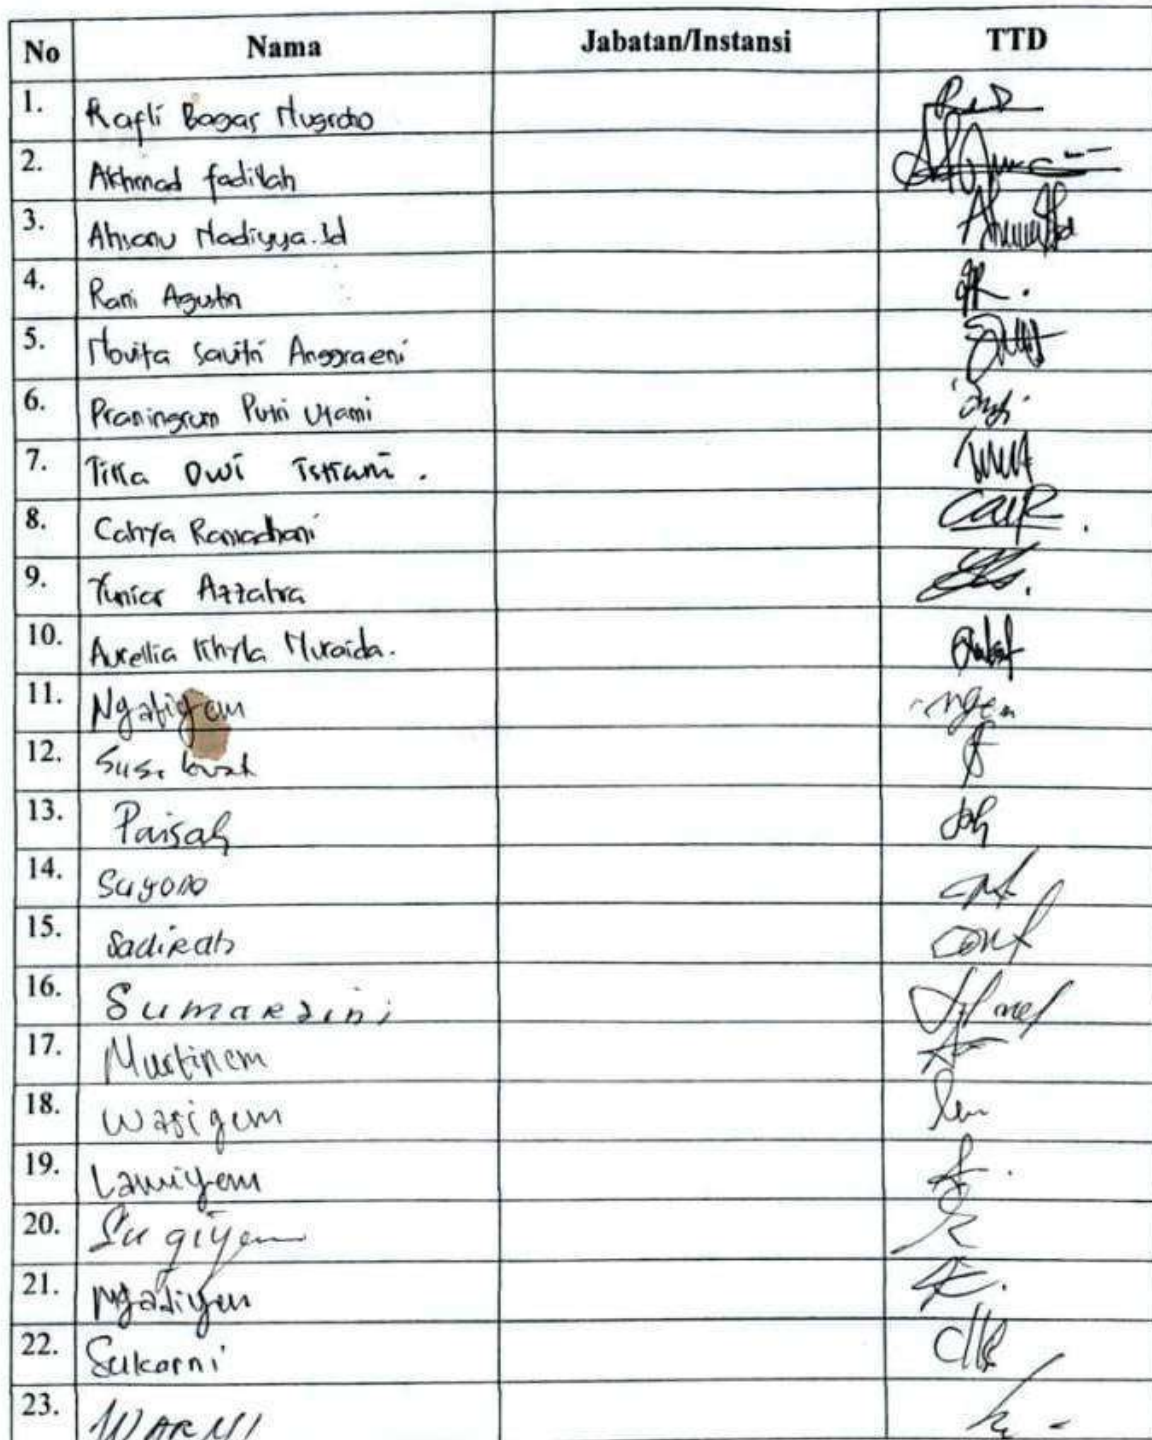 No Nama Jabatan/Instansi TTD
1. Rafli Bagas Nugroho
2. Akhmad fadilah
3. Ahsanu Nadiyya.Id
4. Rani Agustin
5. Novita Savitri Anggraeni
6. Praningrum Putri Utami
7. Titta Dwi Istiani.
8. Cahya Ramadhani
9. Yuniar Azzahra
10. Aurellia Khyla Nuraida.
11. Ngatiyem
12.
13. Paisah
14. Suyono
15. Sadirah
16. Sumarsini
17. Murtinem
18. Wagiyem
19. Lamiyem
20. Sugiyem
21. Ngadiyem
22. Sukarni
23. WARNI